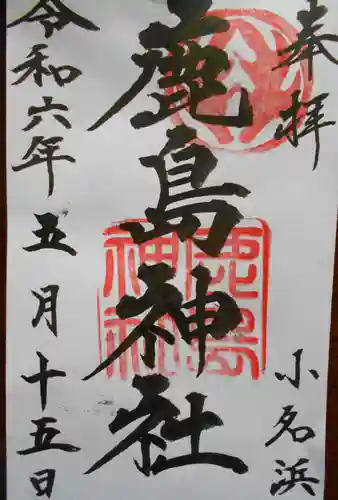 奉拝
小名浜
鹿島神社
令和六年五月十五日
鹿島
神社